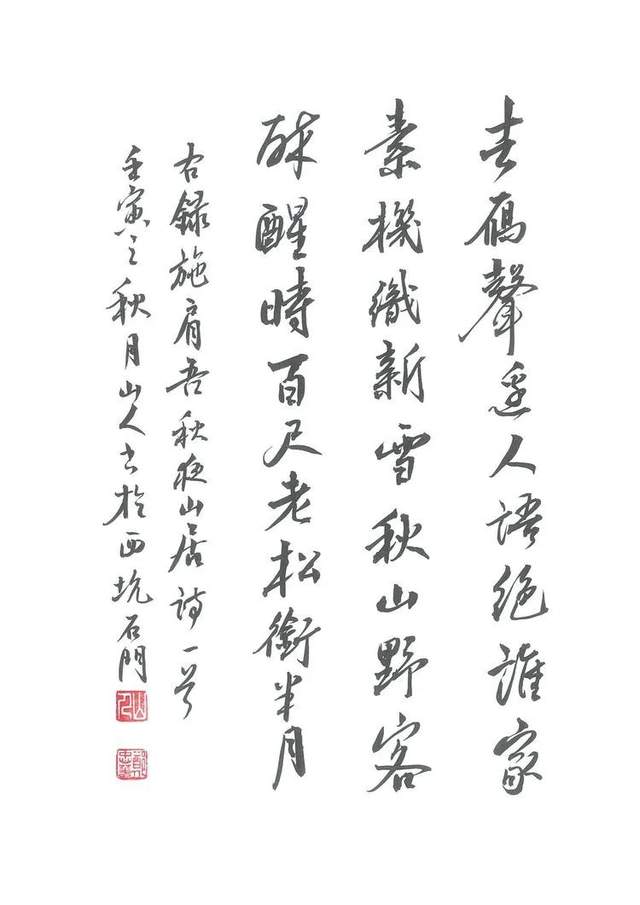 去鴈聲遙人語絕誰家
素機織新雪秋山野客
酔醒時百尺老松銜半月
右錄施肩吾秋夜山居詩一首
壬寅之秋月山人書於西坑石門
山人